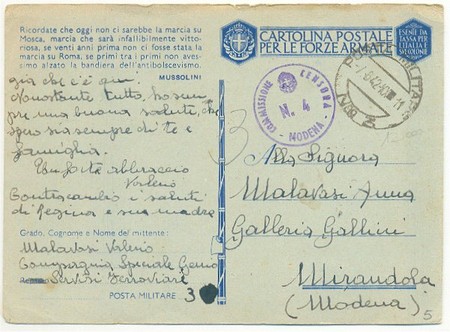 Ricordate che oggi non ci sarebbe la marcia su
Mosca, marcia che sarà infallibilmente vitto-
riosa, se venti anni prima non ci fosse stata la
marcia su Roma, se primi tra i primi non aves-
simo alzato la bandiera dell'antibolscevismo.
MUSSOLINI
già che c'è qui.
Nonostante tutto, ho sem
pre una buona salute, che
spero sia sempre di te e
famiglia.
Un forte abbraccio
Valerio
Contracambio i saluti
di Pegino e sua madre
Grado, Cognome e Nome del mittente:
Malavasi Valerio
Compagnia Speciale Genio
Servizi Ferroviari
POSTA MILITARE 3
CARTOLINA POSTALE
PER LE FORZE ARMATE
ESENTE DA
TASSA PER
L'ITALIA E
SUE COLONIE
COMMISSIONE CENSURA
N. 4
MODENA
POSTA MILITARE
3
Alla Signora
Malavasi Anna
Galleria Gallini
Mirandola
(Modena)
5